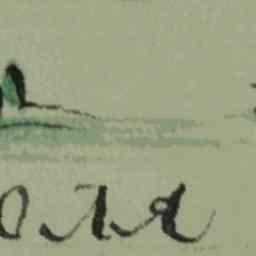 оля